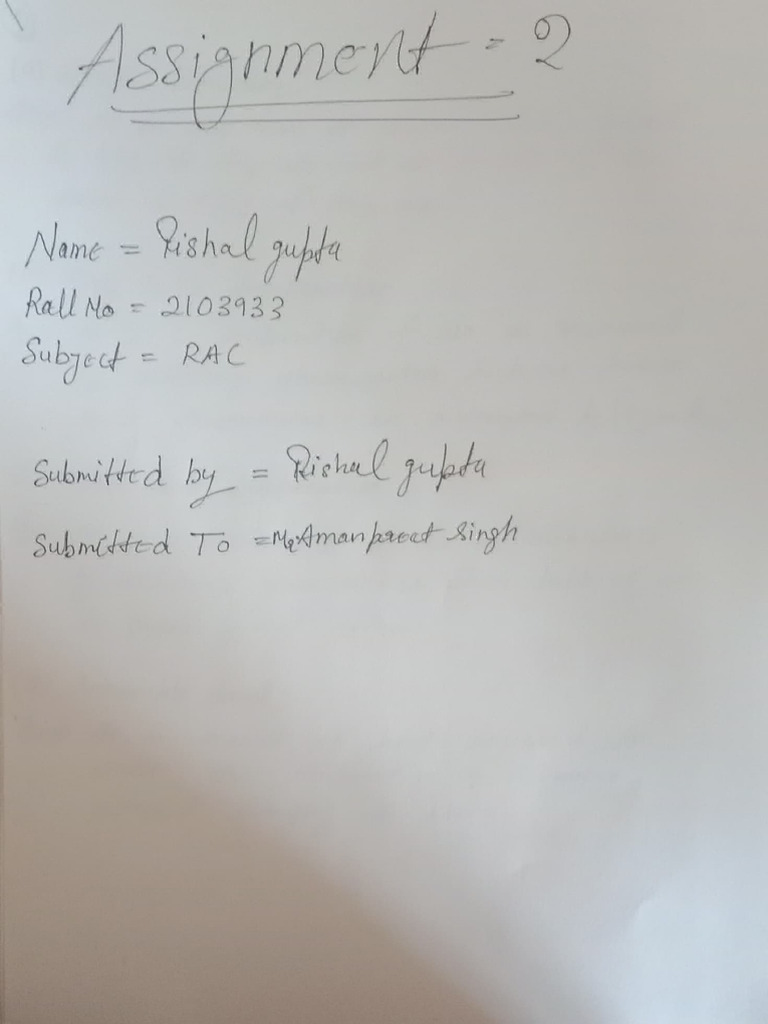 Assignment - 2
Name = Rishal gupta
Rall No = 2103933
Subject = RAC
Submitted by = Rishal gupta
Submitted To = Mr Amanpreet singh